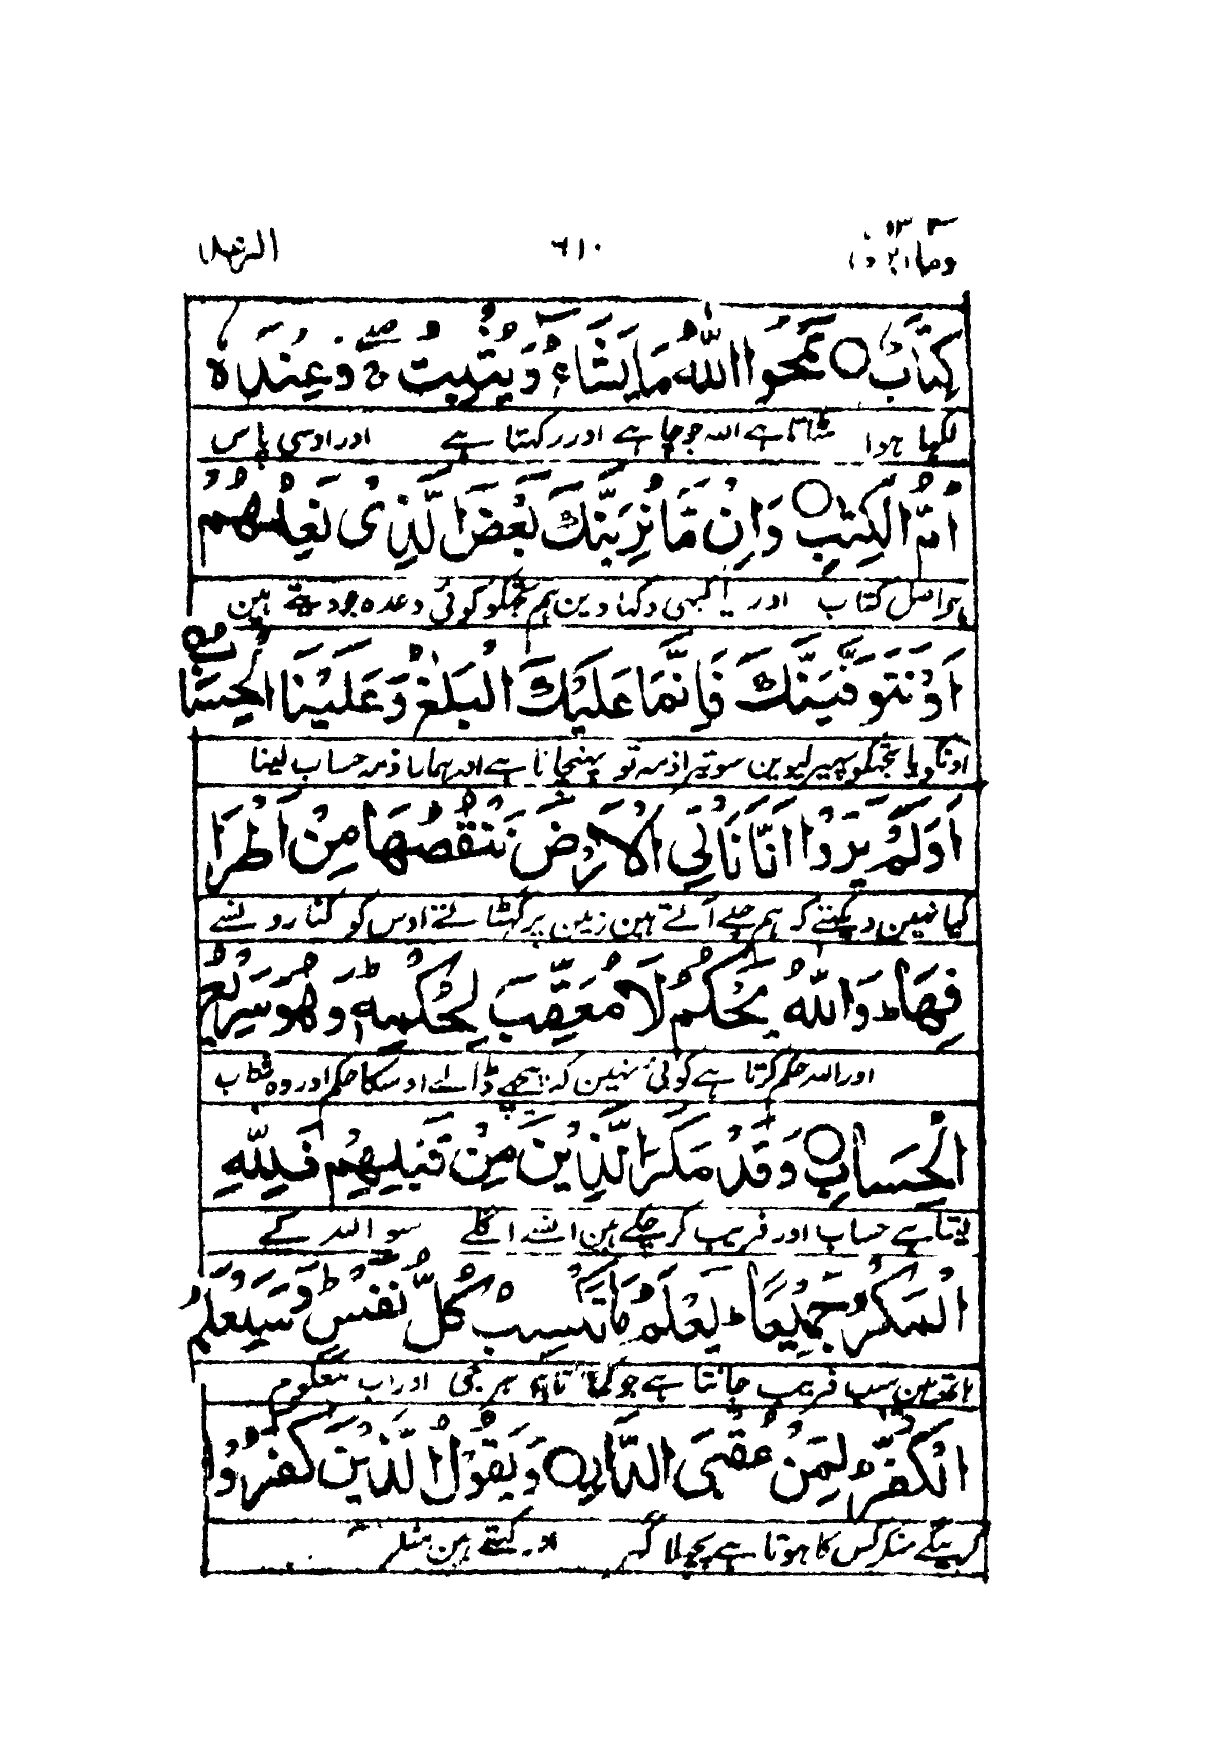 وما ابرئ ١٣ ٦١٠ الرعد
كِتَابٌ ○ يَمْحُوا اللّٰهُ مَا يَشَآءُ وَيُثْبِتُ ۖ وَعِنْدَهٗ
لکھا ہوا مٹاتا ہے اللہ جو چاہے اور رکھتا ہے اور اوسی پاس
اُمُّ الْكِتٰبِ ○ وَاِنْ مَّا نُرِيَنَّكَ بَعْضَ الَّذِیْ نَعِدُهُمْ
ہے اصل کتاب اور یا کبھی دکھا دین ہم تجھکو کوئی وعدہ جو دیتے ہین
اَوْ نَتَوَفَّيَنَّكَ فَاِنَّمَا عَلَيْكَ الْبَلٰغُ وَعَلَيْنَا الْحِسَابُ
اونکو یا تجھکو پھیر لیوین سو تیرا ذمہ تو پہنچانا ہے اور ہمارا ذمہ حساب لینا
اَوَلَمْ يَرَوْا اَنَّا نَاْتِی الْاَرْضَ نَنْقُصُهَا مِنْ اَطْرَا
کیا نہین دیکھتے کہ ہم چلے آتے ہین زمین پر گھٹاتے اوس کو کنارو نسے
فِهَا ؕ وَاللّٰهُ يَحْكُمُ لَا مُعَقِّبَ لِحُكْمِهٖ ؕ وَهُوَ سَرِيْعُ
اور اللہ حکم کرتا ہے کوئی نہین کہ پیچھے ڈالے اوسکا حکم اور وہ شتاب
الْحِسَابِ ○ وَقَدْ مَكَرَ الَّذِيْنَ مِنْ قَبْلِهِمْ فَلِلّٰهِ
لیتا ہے حساب اور فریب کر چکے ہین انسے اگلے سو اللہ کے
الْمَكْرُ جَمِيْعًا ؕ يَعْلَمُ مَا تَكْسِبُ كُلُّ نَفْسٍ ؕ وَسَيَعْلَمُ
ہاتھ مین سب فریب جانتا ہے جو کماتا ہے ہر جی اور اب معلوم
الْكُفّٰرُ لِمَنْ عُقْبَی الدَّارِ ○ وَيَقُوْلُ الَّذِيْنَ كَفَرُوْا
کرینگے منکر کس کا ہوتا ہے پچھلا گھر اور کہتے ہین منکر